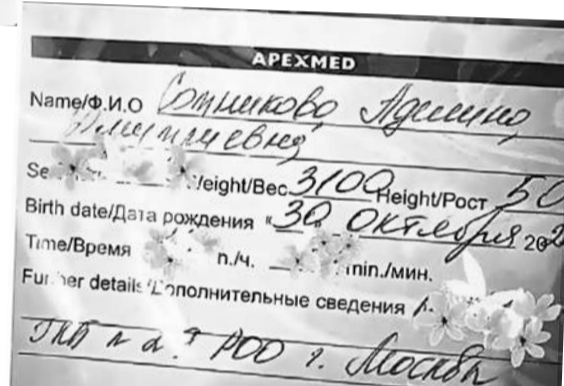 APEXMED
Name/Ф.И.О Сотникова Аделина
Дмитриевна
Weight/Вес 3100 Height/Рост 50
Birth date/Дата рождения "30 октября 202
Time/Время п./ч. min./мин.
Further details/Дополнительные сведения
г. Москвы